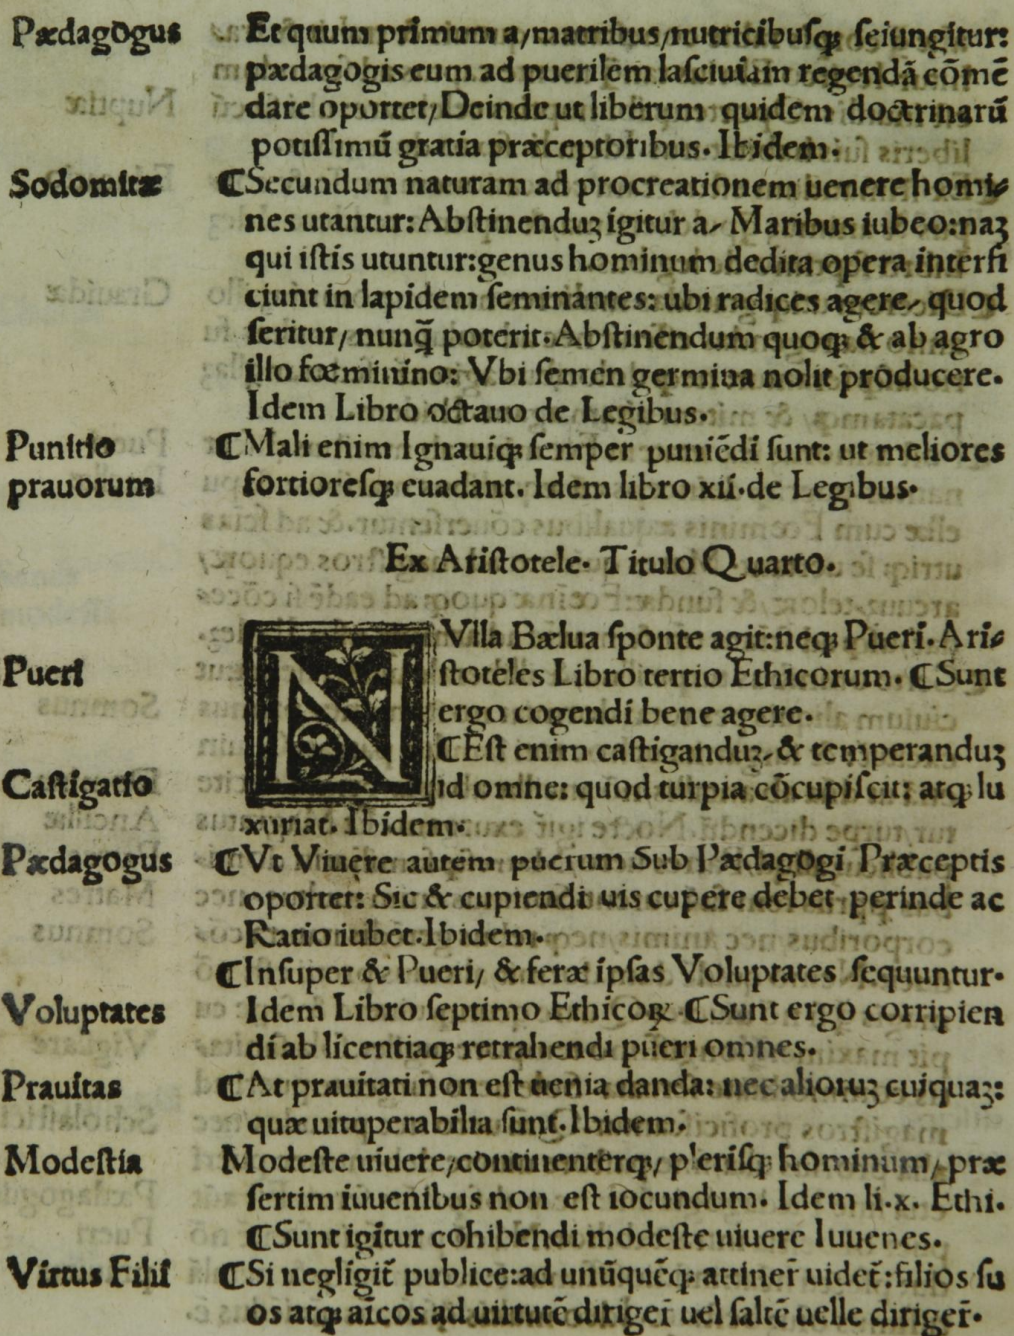 Pædagogus Et quum primum a/matribus/nutricibusqꝫ ſeiungitur:
pædagogis eum ad puerilem laſciuiam regendã cõmẽ
dare oportet/Deinde ut liberum quidem doctrinarũ
potiſſimũ gratia præceptoribus. Ibidem.
Sodomitæ ¶Secundum naturam ad procreationem uenere homi⸗
nes utantur: Abſtinenduꝫ igitur a⸗ Maribus iubeo:naꝫ
qui iſtis utuntur:genus hominum dedita opera interfi
ciunt in lapidem ſeminantes: ubi radices agere⸗ quod
ſeritur/ nunq̃ poterit. Abſtinendum quoqꝫ & ab agro
illo fœminino: Vbi ſemen germina nolit producere.
Idem Libro octauo de Legibus.
Punitio ¶Mali enim Ignauiqꝫ ſemper puniẽdi ſunt: ut meliores
prauorum fortioreſqꝫ euadant. Idem libro xii.de Legibus.
Ex Ariſtotele. Titulo Quarto.
NVlla Bælua ſponte agit:neqꝫ Pueri. Ari⸗
Pueri ſtoteles Libro tertio Ethicorum. ¶Sunt
ergo cogendi bene agere.
¶Eſt enim caſtiganduꝫ⸗ & temperanduꝫ
Caſtigatio id omne: quod turpia cõcupiſcit: atqꝫ lu
xuriat. Ibidem.
Pædagogus ¶Vt Viuere autem puerum Sub Pædagogi Præceptis
oportet: Sic & cupiendi uis cupere debet perinde ac
Ratio iubet.Ibidem.
¶Inſuper & Pueri/ & feræ ipſas Voluptates ſequuntur.
Voluptates Idem Libro ſeptimo Ethicoꝝ ¶Sunt ergo corripien
di ab licentiaqꝫ retrahendi pueri omnes.
Prauitas ¶At prauitati non eſt uenia danda: nec alioruꝫ cuiquaꝫ:
quæ uituperabilia ſunt.Ibidem.
Modeſtia Modeſte uiuere/continenterqꝫ/ p'eriſqꝫ hominum/ præ
ſertim iuuenibus non eſt iocundum. Idem li.x. Ethi.
¶Sunt igitur cohibendi modeſte uiuere Iuuenes.
Virtus Filii ¶Si negligit̃ publice:ad unũquẽqꝫ attinet̃ uidet̃:filios ſu
os atqꝫ aĩcos ad uirtutẽ diriger̃ uel ſaltẽ uelle diriger̃.